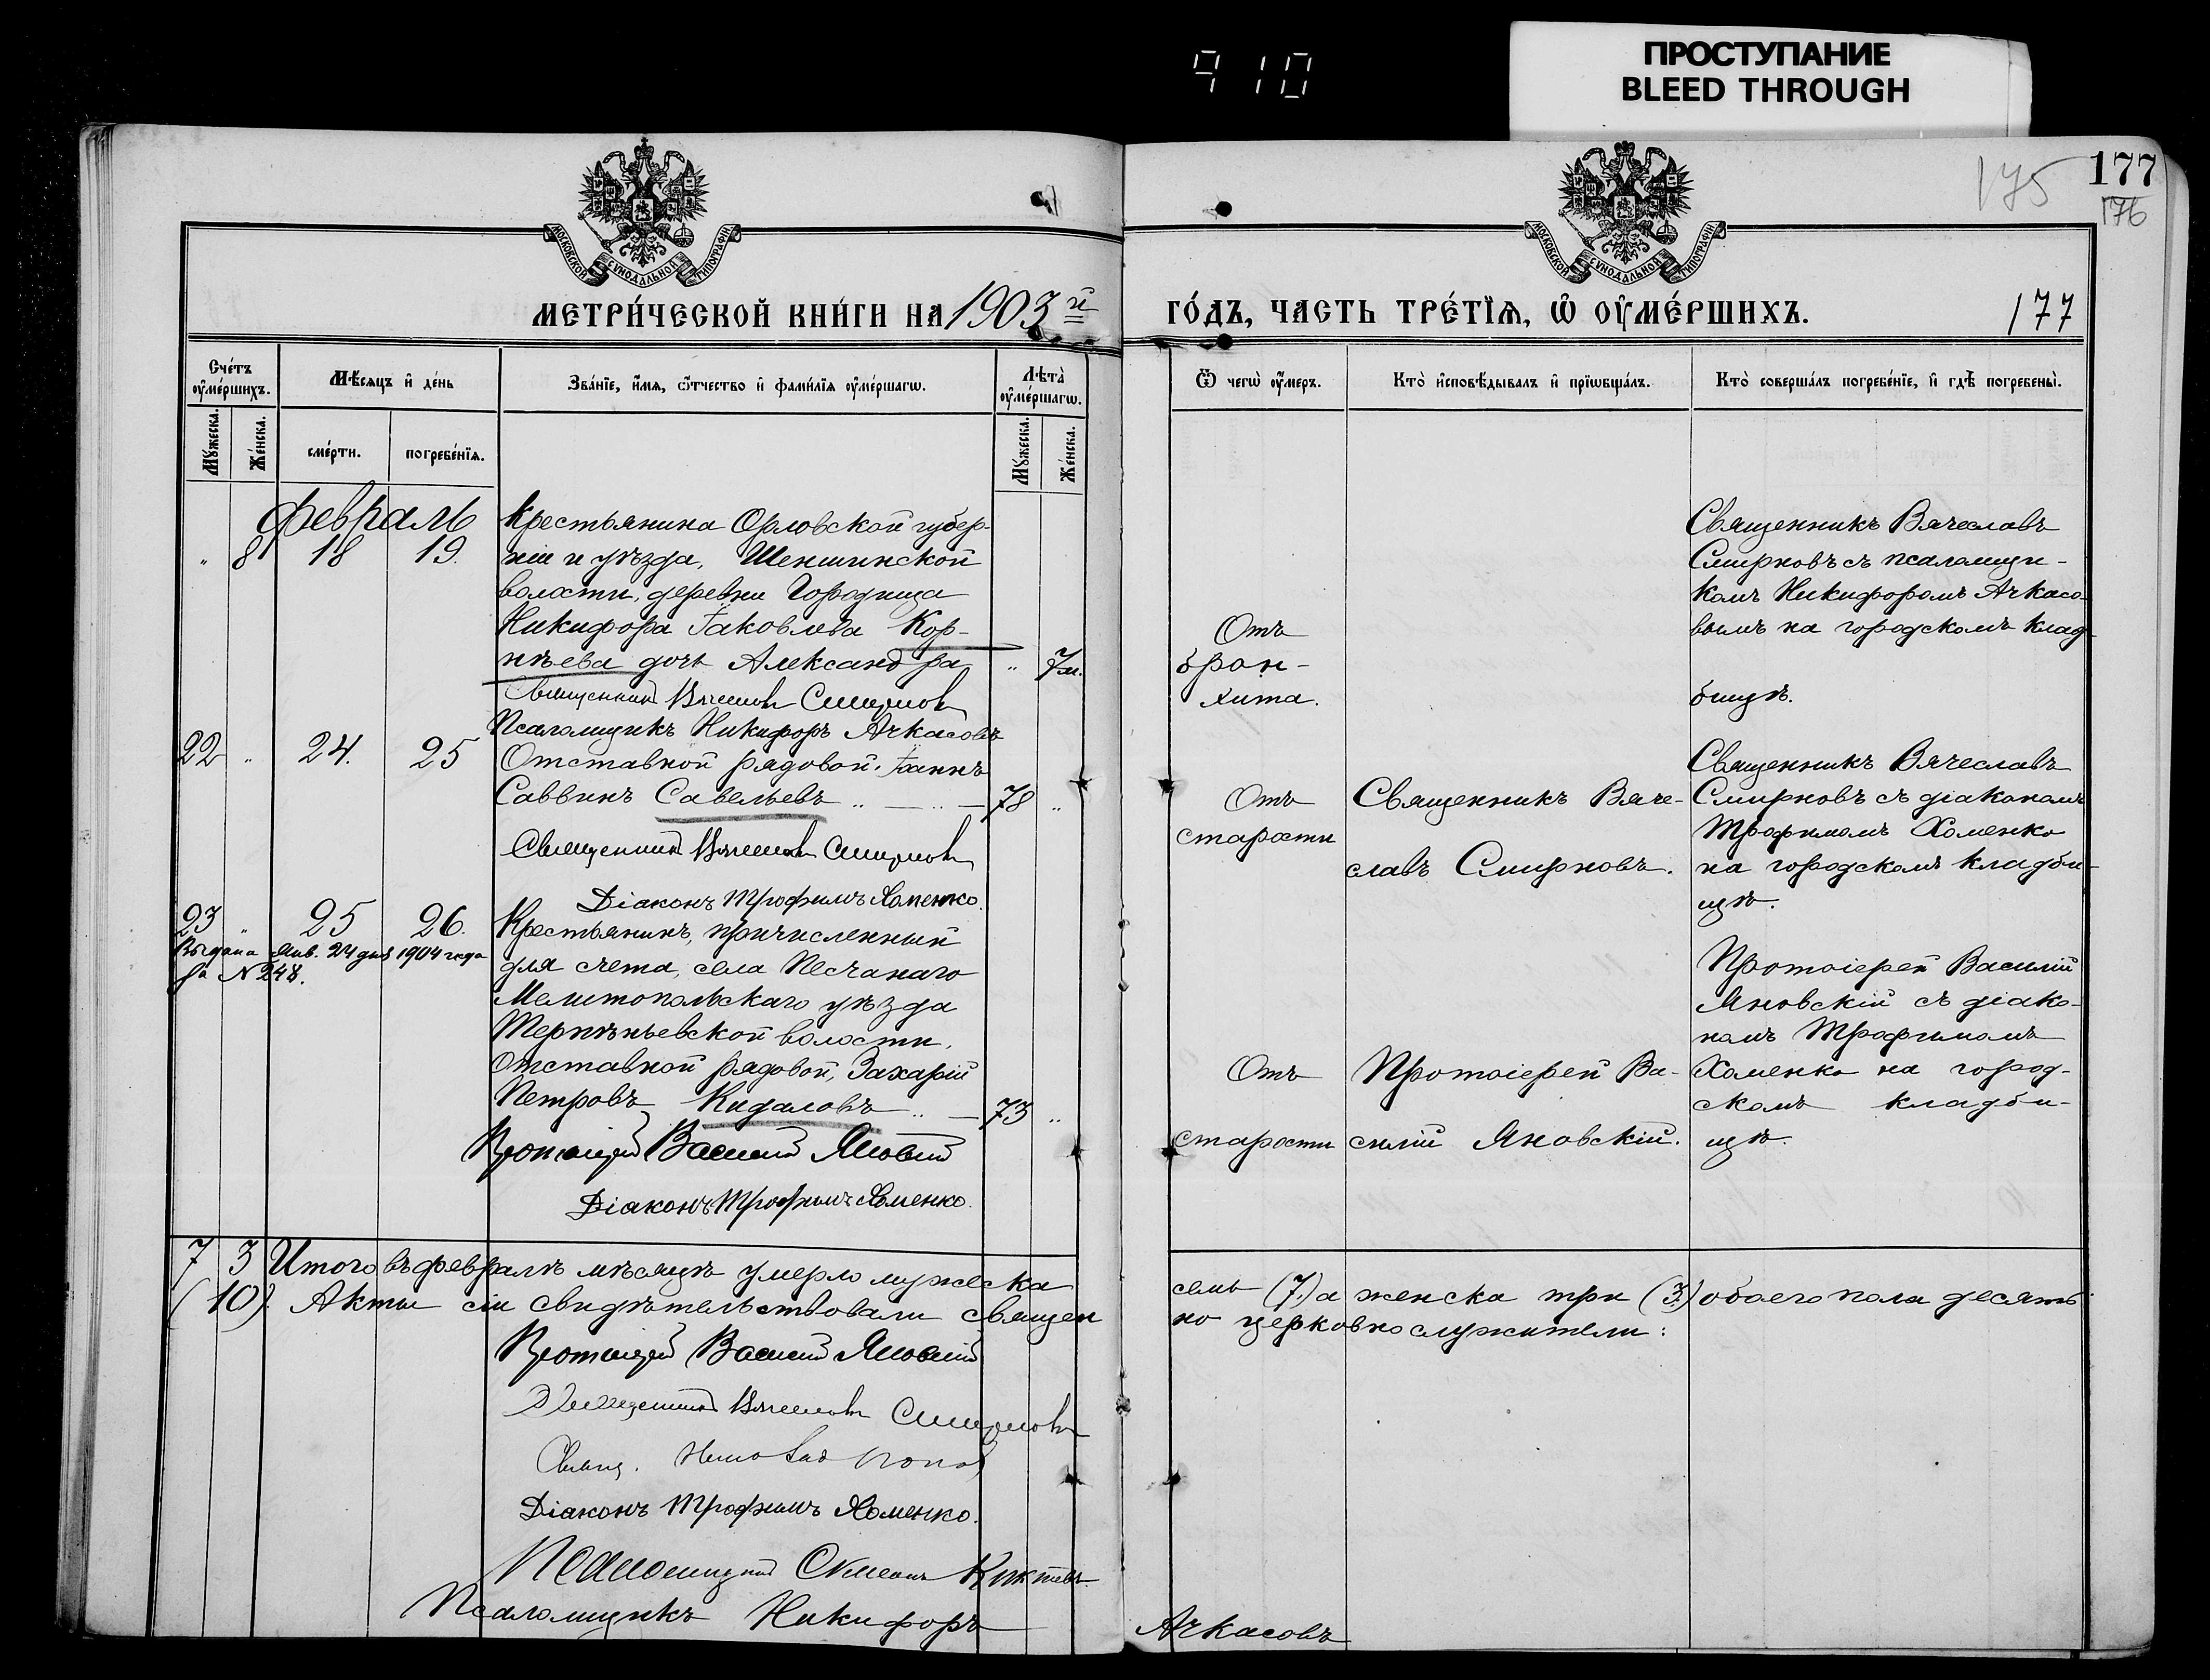 910
ПРОСТУПАНИЕ
BLEED THROUGH
175
177
176
МОСКОВСКОЙ СѴНОДАЛЬНОЙ ТИПОГРАФІИ
МОСКОВСКОЙ СѴНОДАЛЬНОЙ ТИПОГРАФІИ
МЕТРИ́ЧЕСКОЙ КНИ́ГИ НА 1903й
ГО́ДЪ, ЧАСТЬ ТРЕ́ТІѦ, Ѽ ОУ҆МЕ́РШИХЪ.
177
Сче́тъ оу҆ме́ршихъ.
Мѣ́сяцъ и҆ де́нь
Зва́нїе, и҆́мѧ, ѻ҆́тчество и҆ фами́лїѧ оу҆ме́ршагѡ.
Лѣ́та оу҆ме́ршагѡ.
Ѿ чегѡ̀ оу҆́меръ.
Кто̀ и҆сповѣ́дывалъ и҆ прїѡбща́лъ.
Кто̀ соверша́лъ погребе́нїе, и҆ гдѣ̀ погребены̀.
Мꙋ́жеска.
Же́нска.
сме́рти.
погребе́нїѧ.
Мꙋ́жеска.
Же́нска.
Февраль
" 8 18 19.
Крестьянина Орловской губер-
ніи и уѣзда, Шеншинской
волости, деревни Городища
Никифора Іаковлева Кор-
нѣева дочь Александра " 7м.
Священникъ Вячеславъ Смирновъ
Псаломщикъ Никифоръ Ачкасовъ
Отъ
брон-
хита.
Священникъ Вячеславъ
Смирновъ съ псаломщи-
комъ Никифоромъ Ачкасо-
вымъ на городскомъ клад-
бищѣ.
22 " 24. 25
Отставной рядовой Іоаннъ
Саввинъ Савельевъ 78 "
Священникъ Вячеславъ Смирновъ
Діаконъ Трофимъ Хоменко.
Отъ
старости
Священникъ Вяче-
славъ Смирновъ.
Священникъ Вячеславъ
Смирновъ съ діакономъ
Трофимомъ Хоменко
на городскомъ кладби-
щѣ.
23 " 25 26.
Выдана Янв. 24 дня 1904 года
за № 248.
Крестьянинъ, причисленный
для счета, села Песчанаго
Мелитопольскаго уѣзда
Терпѣньевской волости,
отставной рядовой, Захарій
Петровъ Кидаловъ 73 "
Протоіерей Василий Яновский
Діаконъ Трофимъ Хоменко.
Отъ
старости
Протоіерей Ва-
силій Яновскій.
Протоіерей Василій
Яновскій съ діако-
номъ Трофимомъ
Хоменко на город-
скомъ кладби-
щѣ.
7 3 Итого въ февралѣ мѣсяцѣ умерло мужеска
семь (7.) а женска три (3.) обоего пола десять
(10). Акты сіи свидѣтельствовали священ
но церковнослужители:
Протоіерей Василий Яновский
Священникъ Вячеславъ Смирновъ
Свящ. Попов
Діаконъ Трофимъ Хоменко.
Псаломщикъ Симеонъ
Псаломщикъ Никифоръ
Ачкасовъ